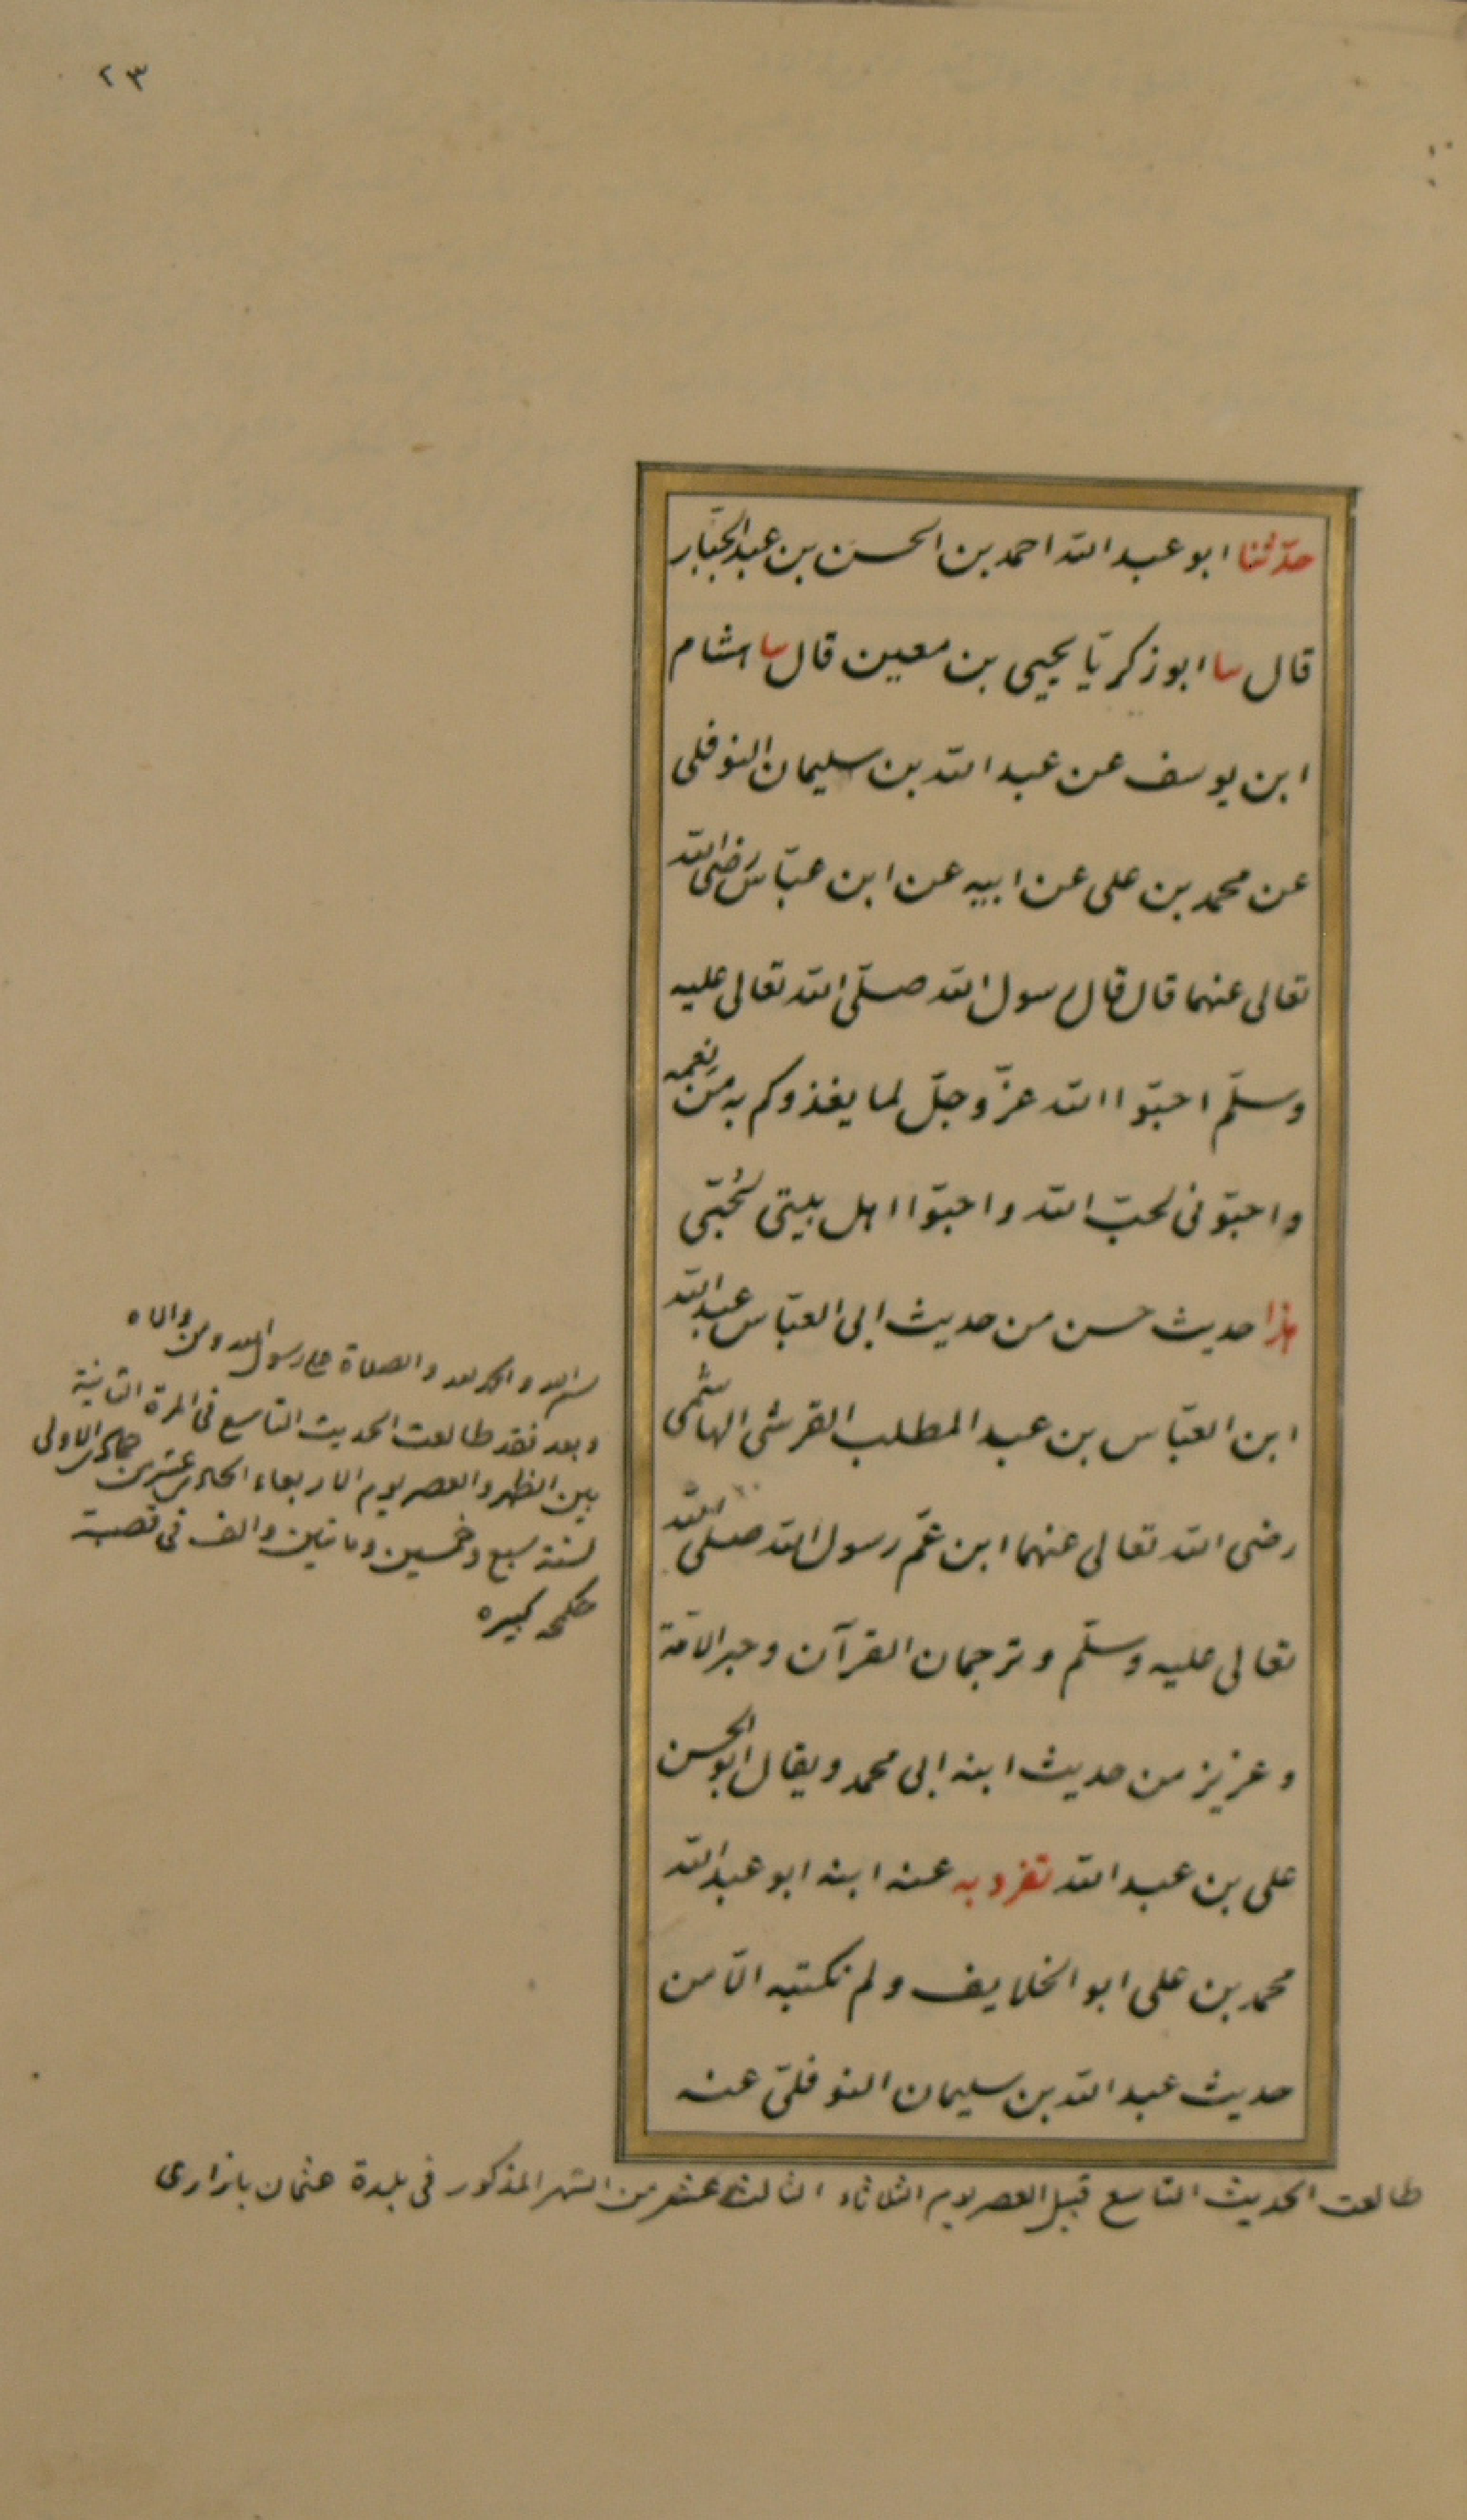 ٢٣
حدّثنا ابو عبد الله احمد بن الحسن بن عبد الجبّار
قال سا ابو زكريّا يحيى بن معين قال سا هشام
ابن يوسف عن عبد الله بن سليمان النوفلى
عن محمد بن على عن ابيه عن ابن عبّاس رضى الله
تعالى عنهما قال قال رسول الله صلّى الله تعالى عليه
وسلّم احبّوا الله عزّ وجلّ لما يغذوكم به من نعمه
واحبّونى لحبّ الله واحبّوا اهل بيتى لحُبّى
هذا حديث حسن من حديث ابى العبّاس عبد الله
ابن العبّاس بن عبد المطلب القرشى الهاشمى
رضى الله تعالى عنهما ابن عمّ رسول الله صلى الله
تعالى عليه وسلّم وترجمان القرآن وحبر الامّة
وعزيز من حديث ابنه ابى محمد ويقال ابو الحسن
على بن عبد الله تفرد به عنه ابنه ابو عبد الله
محمد بن على ابو الخلايف ولم نكتبه الّا من
حديث عبد الله بن سليمان النوفلىّ عنه
بسم الله والحمد لله والصلاة على رسول الله ومن والاه
وبعد فقد طالعت الحديث التاسع فى المرة الثانية
بين الظهر والعصر يوم الاربعاء الحادى عشر من جمادى الاولى
لسنة سبع وخمسين ومائتين والف فى قصبة
كبيره
طالعت الحديث التاسع قبيل العصر يوم الثلاثاء الثالث عشر من الشهر المذكور فى بلدة عثمان بازارى